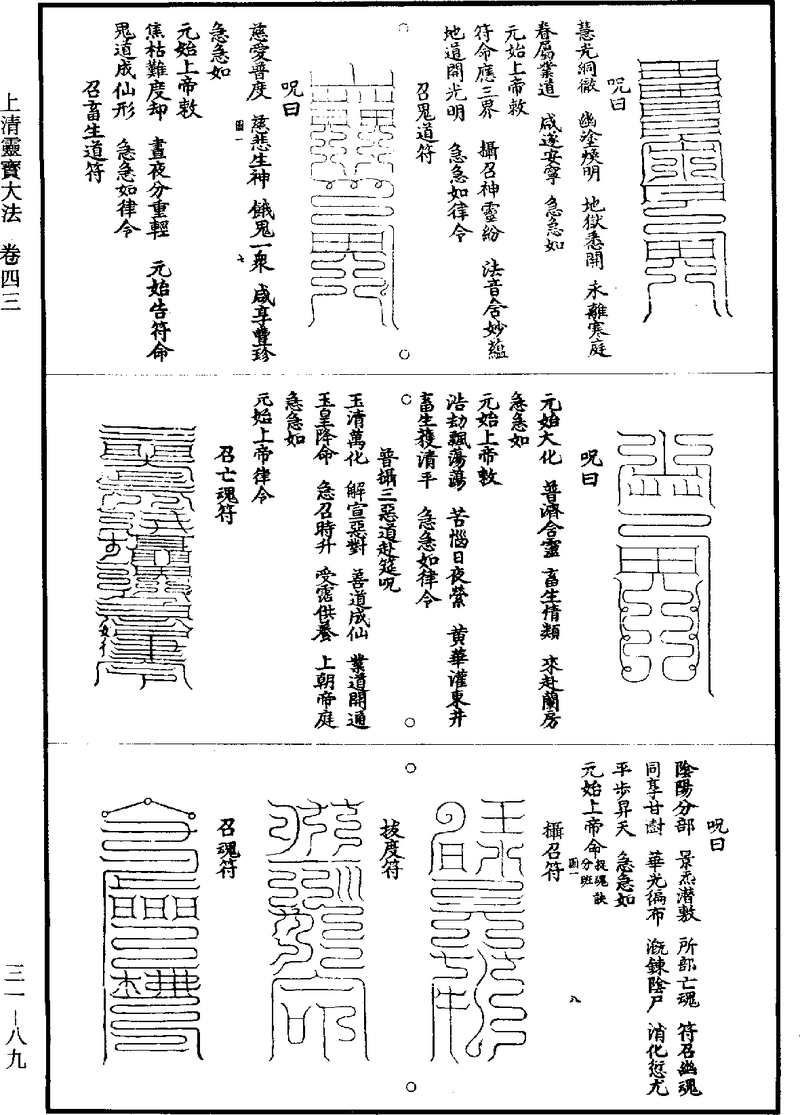 上清靈寶大法 卷四三
三一—八九
呪曰
慧光綱徹 幽塗煥明 地獄悉開 永離寒庭
眷屬業道 咸遂安寧 急急如
元始上帝敕
符命應三界 攝召神靈紛 法音含妙蘊
地道開光明 急急如律令
召鬼道符
呪曰
慈愛普度 慈悲生神 餓鬼一衆 咸享豐珍
圖一
七
急急如
元始上帝敕
焦枯難度却 晝夜分重輕 元始告符命
鬼道成仙形 急急如律令
召畜生道符
呪曰
元始大化 普濟含靈 畜生情類 來赴蘭房
急急如
元始上帝敕
浩劫飄蕩蕩 苦惱日夜縈 黄華灌東井
畜生獲清平 急急如律令
普攝三惡道赴筵呪
玉清萬化 解宣惡對 善道成仙 業道開通
玉皇降命 急召時升 受霑供養 上朝帝庭
急急如
元始上帝律令
召亡魂符
呪曰
陰陽分部 景炁潛敷 所部亡魂 符召幽魂
同享甘澍 華光徧布 溉鍊陰尸 消化愆尤
平步昇天 急急如
元始上帝命
捉魂訣
分班
圖一
攝召符
八
拔度符
召魂符